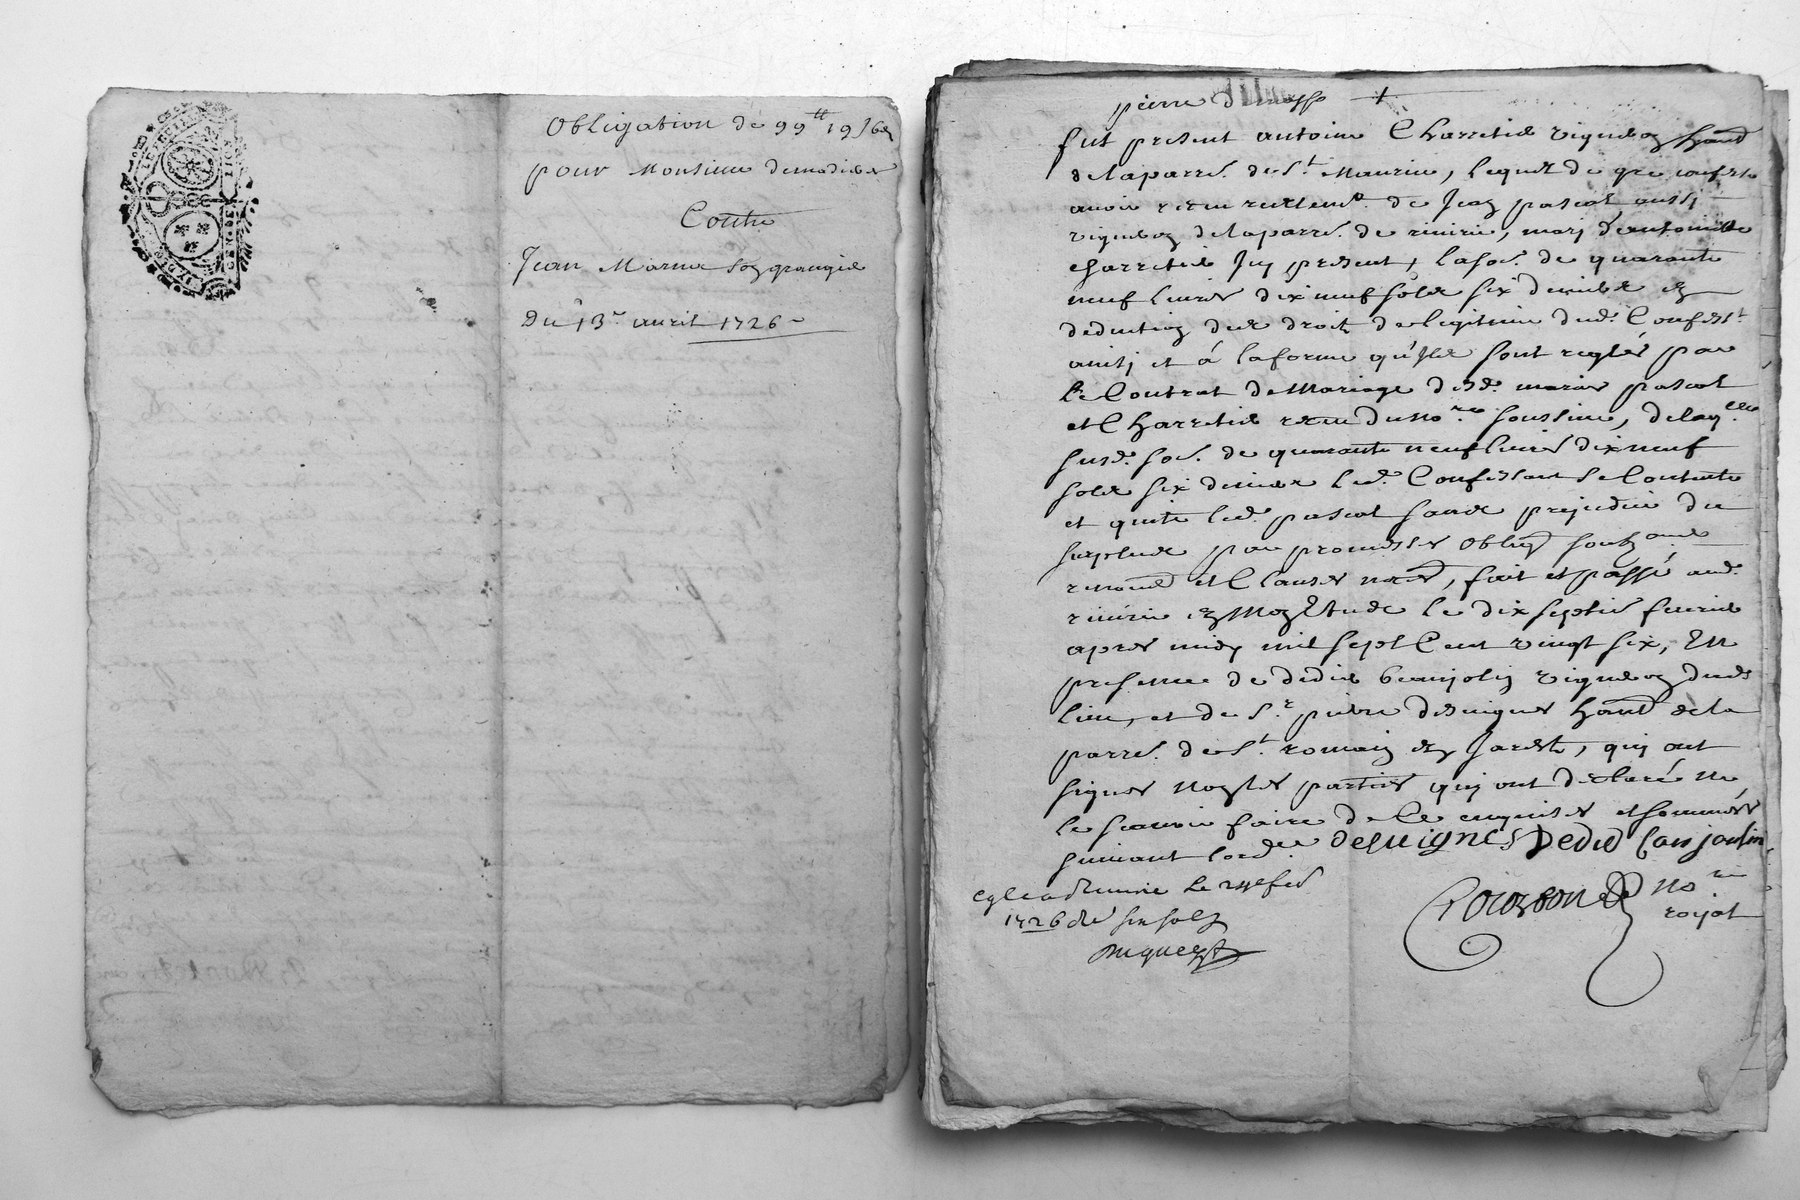 Obligation de 99ᵗᵗ 19 s 6 d
pour Monsieur demadiere
Contre
Jean Marna son grangier
Du 13ᵉ auril 1726
pierre
fut present antoine Charretier vigneron habnᵗ
de la parreᵉ de Sᵗ Maurice, lequel de gré confesse
auoir receu reellemᵗ de Jean pascal aussi
vigneron de la parreᵉ de riuirie, mary d'antoinette
charretier Icy present, la soᵉ de quarante
neuf liures dix neuf sols six deniers en
deduction des droits de legitime dudᵗ Confessᵗ
ainsi et à la forme qu'Ils sont reglés par
le Contrat de Mariage desdᵗ mariés pascal
et Charretier receu du noʳᵉ soussigné, de laqᵉˡˡᵉ
susdᵉ soᵉ de quarante neuf liures dix neuf
sols six deniers ledᵗ Confessant se Contente
et quitte ledᵗ pascal sans prejudice du
surplus par promesses oblign
renonᵒⁿ et Clauses necesᵉˢ, fait et passé audᵗ
riuirie en Mon Etude le dix septiè feurier
apres midy mil sept Cent vingt six, En
presence de didier vigneron dudᵗ
lieu, et de Sʳ pierre desuignes habnᵗ de la
parreᵉ de Sᵗ romain en Jarest, qui ont
signés non les parties qui ont declaré ne
le sçauoir faire de Ce enquises et sommées
suiuant lordᶜᵉ desuignes Dedid Canjoulin
le 24ᵉ feu
1726 six sols
noʳᵉ
royal